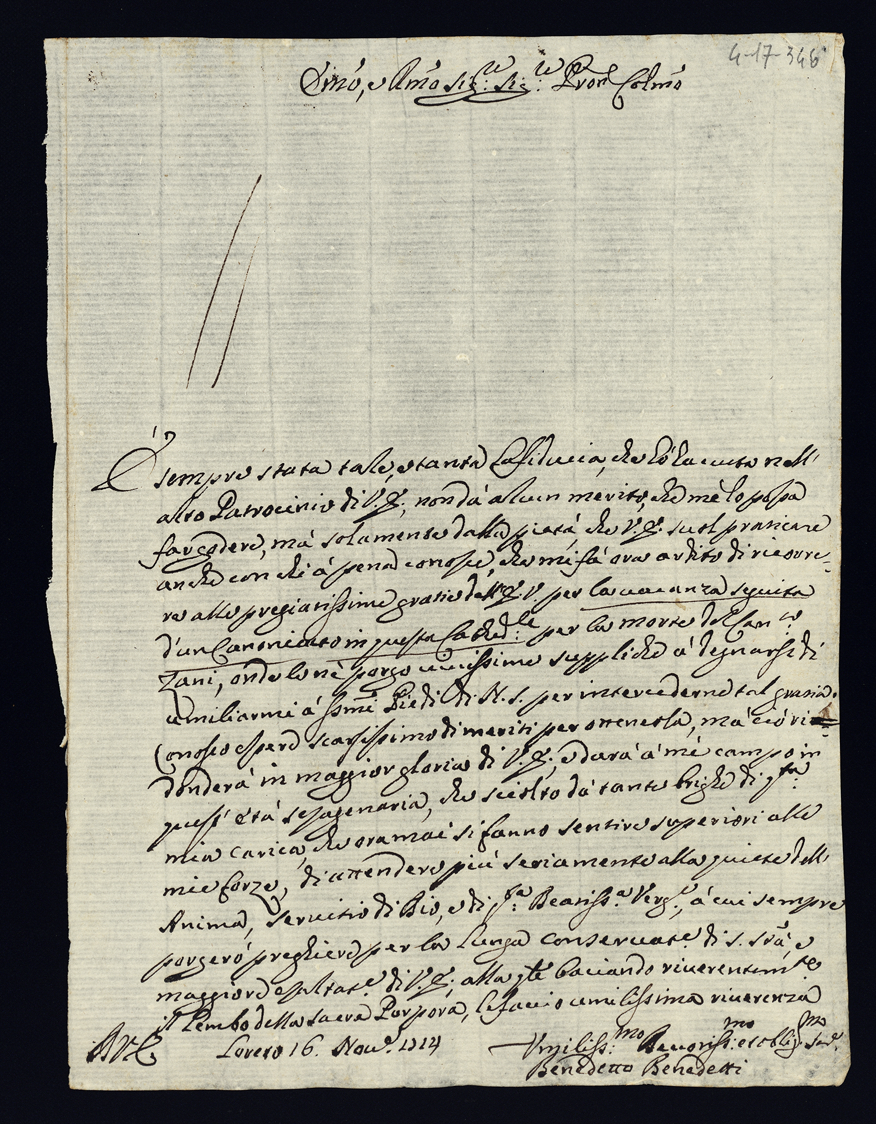 4-17-346
Em̃o, e Rm̃o Sig:re Sig:re Pron̄ Colm̃o
È sempre stata tale, e tanta la fiducia, che hò hauuta nell'
alto Patrocinio di V.E., non dà alcun merito, che mè lo possa
far godere, mà solamente dalla pietà, che V.E. suol praticare
anche con chi à pena conosce, che mi fà ora ardito di ricorre-
re alle pregiatissime gratie dell'E.V. per la uacanza seguita
d'un Canonicato in questa Cathed:le per la morte del Can:co
Zani, onde le nè porgo uiuissime suppliche à degnarsi di
umiliarmi à SSmi Piedi di N.S. per intercederne tal grazia.
Conosco esser scarsissimo di meriti per ottenerla, mà ciò ri=
donderà in maggior gloria di V.E., e darà à mè campo in
quest'età sessagenaria, che sciolto dà tante brighe di q.ta
mia carica, che oramai si fanno sentire superiori alle
mie forze, di attendere più seriamente alla quiete dell'
Anima, seruitio di Dio, e di q.ta Beatiss.a Verg.e, à cui sempre
porgerò preghiere per la lunga conseruat.e di S. Stà, e
maggiore esaltat.e di V.E., alla q.le baciando riuerentem.te
il lembo della sacra Porpora, le faccio umilissima riuerenza
Loreto 16. Nou.e 1714
Vmiliss:mo Deuotiss:mo et oblig:mo Seru.e
Benedetto Benedetti